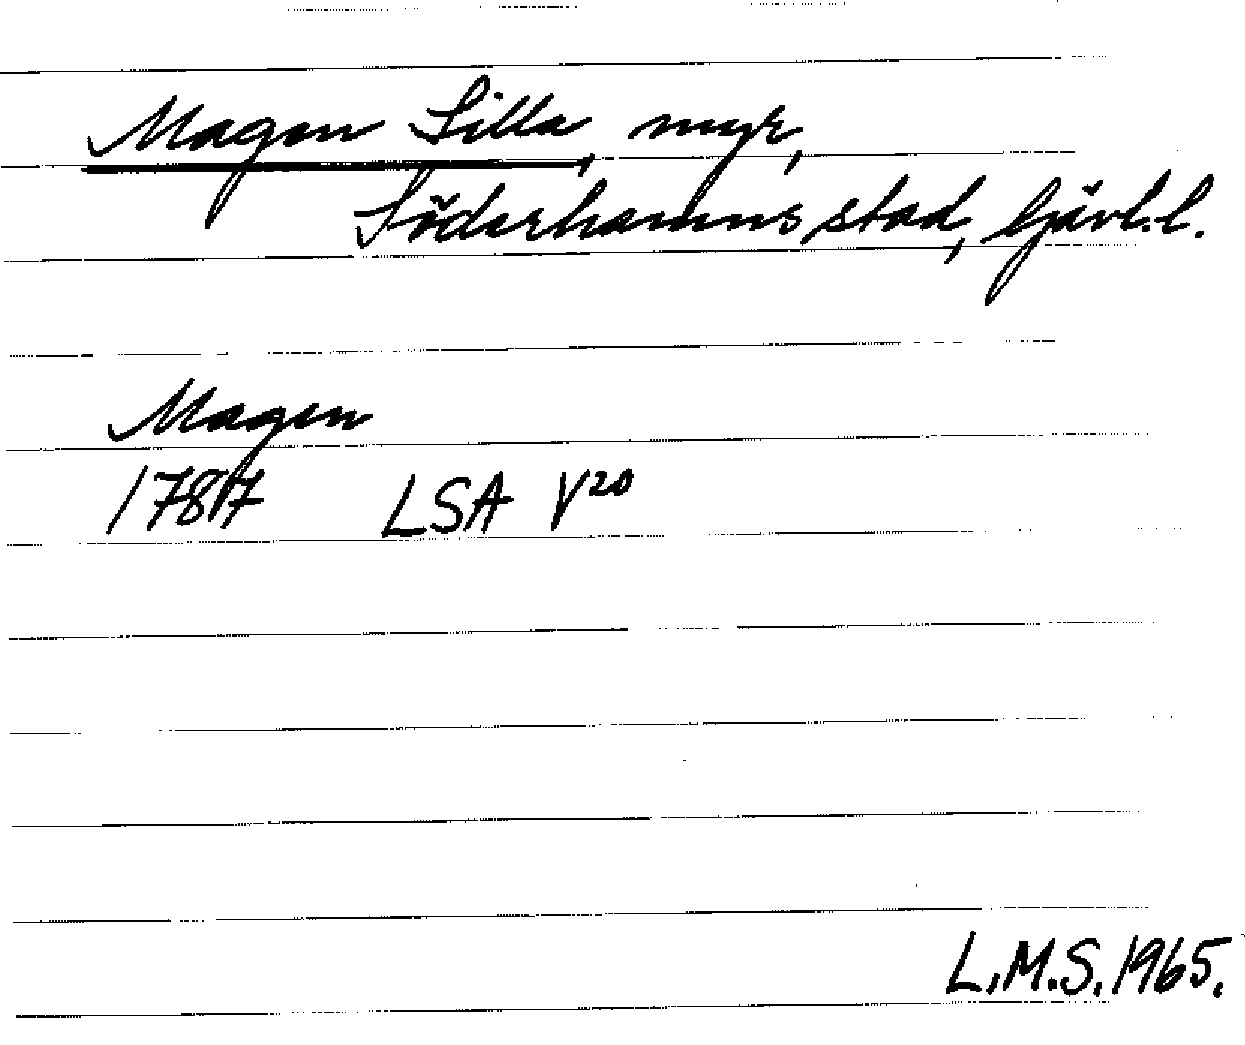 Magen Lilla, myr,
Söderhamns stad, Gävl.l.
Magen
1787 LSA V20
L.M.S. 1965.